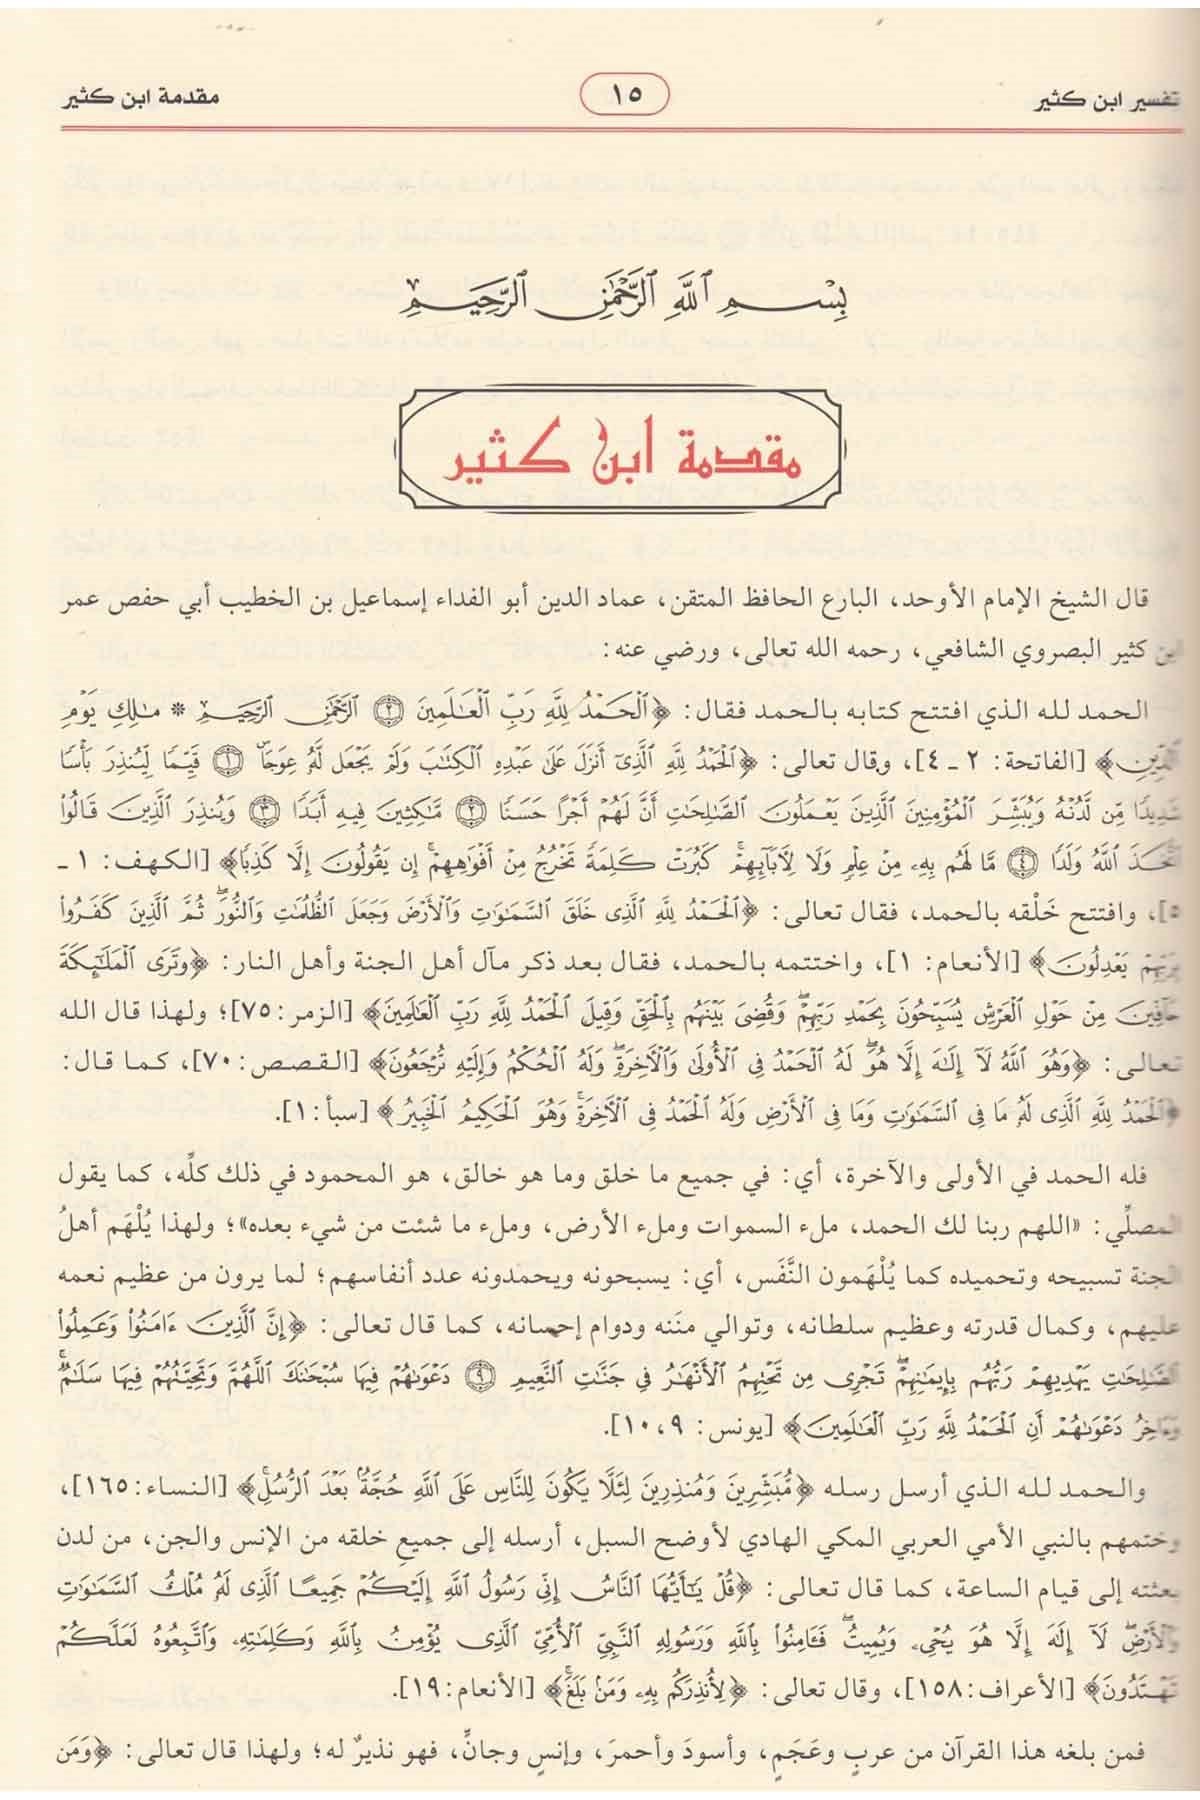 تفسير ابن كثير
١٥
مقدمة ابن كثير
بِسْمِ ٱللَّهِ ٱلرَّحْمَٰنِ ٱلرَّحِيمِ
مقدمة ابن كثير
قال الشيخ الإمام الأوحد، البارع الحافظ المتقن، عماد الدين أبو الفداء إسماعيل بن الخطيب أبي حفص عمر
ابن كثير البصروي الشافعي، رحمه الله تعالى، ورضي عنه:
الحمد لله الذي افتتح كتابه بالحمد فقال: ﴿ٱلْحَمْدُ لِلَّهِ رَبِّ ٱلْعَٰلَمِينَ ۝٢ ٱلرَّحْمَٰنِ ٱلرَّحِيمِ * مَٰلِكِ يَوْمِ
ٱلدِّينِ﴾ [الفاتحة: ٢ ـ ٤]، وقال تعالى: ﴿ٱلْحَمْدُ لِلَّهِ ٱلَّذِىٓ أَنزَلَ عَلَىٰ عَبْدِهِ ٱلْكِتَٰبَ وَلَمْ يَجْعَل لَّهُۥ عِوَجَاۜ ۝١ قَيِّمًا لِّيُنذِرَ بَأْسًا
شَدِيدًا مِّن لَّدُنْهُ وَيُبَشِّرَ ٱلْمُؤْمِنِينَ ٱلَّذِينَ يَعْمَلُونَ ٱلصَّٰلِحَٰتِ أَنَّ لَهُمْ أَجْرًا حَسَنًا ۝٢ مَّٰكِثِينَ فِيهِ أَبَدًا ۝٣ وَيُنذِرَ ٱلَّذِينَ قَالُوا۟
ٱتَّخَذَ ٱللَّهُ وَلَدًا ۝٤ مَّا لَهُم بِهِۦ مِنْ عِلْمٍ وَلَا لِءَابَآئِهِمْ ۚ كَبُرَتْ كَلِمَةً تَخْرُجُ مِنْ أَفْوَٰهِهِمْ ۚ إِن يَقُولُونَ إِلَّا كَذِبًا﴾ [الكهف: ١ ـ
٥]، وافتتح خَلْقه بالحمد، فقال تعالى: ﴿ٱلْحَمْدُ لِلَّهِ ٱلَّذِى خَلَقَ ٱلسَّمَٰوَٰتِ وَٱلْأَرْضَ وَجَعَلَ ٱلظُّلُمَٰتِ وَٱلنُّورَ ۖ ثُمَّ ٱلَّذِينَ كَفَرُوا۟
بِرَبِّهِمْ يَعْدِلُونَ﴾ [الأنعام: ١]، واختتمه بالحمد، فقال بعد ذكر مآل أهل الجنة وأهل النار: ﴿وَتَرَى ٱلْمَلَٰٓئِكَةَ
حَآفِّينَ مِنْ حَوْلِ ٱلْعَرْشِ يُسَبِّحُونَ بِحَمْدِ رَبِّهِمْ ۖ وَقُضِىَ بَيْنَهُم بِٱلْحَقِّ وَقِيلَ ٱلْحَمْدُ لِلَّهِ رَبِّ ٱلْعَٰلَمِينَ﴾ [الزمر: ٧٥]؛ ولهذا قال الله
تعالى: ﴿وَهُوَ ٱللَّهُ لَآ إِلَٰهَ إِلَّا هُوَ ۖ لَهُ ٱلْحَمْدُ فِى ٱلْأُولَىٰ وَٱلْءَاخِرَةِ ۖ وَلَهُ ٱلْحُكْمُ وَإِلَيْهِ تُرْجَعُونَ﴾ [القصص: ٧٠]، كما قال:
﴿ٱلْحَمْدُ لِلَّهِ ٱلَّذِى لَهُۥ مَا فِى ٱلسَّمَٰوَٰتِ وَمَا فِى ٱلْأَرْضِ وَلَهُ ٱلْحَمْدُ فِى ٱلْءَاخِرَةِ ۚ وَهُوَ ٱلْحَكِيمُ ٱلْخَبِيرُ﴾ [سبأ: ١].
فله الحمد في الأولى والآخرة، أي: في جميع ما خلق وما هو خالق، هو المحمود في ذلك كلِّه، كما يقول
المصلِّي: «اللهم ربنا لك الحمد، ملء السموات وملء الأرض، وملء ما شئت من شيء بعده»؛ ولهذا يُلْهَم أهلُ
الجنة تسبيحه وتحميده كما يُلْهَمون النَّفَس، أي: يسبحونه ويحمدونه عدد أنفاسهم؛ لما يرون من عظيم نعمه
عليهم، وكمال قدرته وعظيم سلطانه، وتوالي مننَه ودوام إحسانه، كما قال تعالى: ﴿إِنَّ ٱلَّذِينَ ءَامَنُوا۟ وَعَمِلُوا۟
ٱلصَّٰلِحَٰتِ يَهْدِيهِمْ رَبُّهُم بِإِيمَٰنِهِمْ ۖ تَجْرِى مِن تَحْتِهِمُ ٱلْأَنْهَٰرُ فِى جَنَّٰتِ ٱلنَّعِيمِ ۝٩ دَعْوَىٰهُمْ فِيهَا سُبْحَٰنَكَ ٱللَّهُمَّ وَتَحِيَّتُهُمْ فِيهَا سَلَٰمٌ ۚ
وَءَاخِرُ دَعْوَىٰهُمْ أَنِ ٱلْحَمْدُ لِلَّهِ رَبِّ ٱلْعَٰلَمِينَ﴾ [يونس: ٩، ١٠].
والحمد لله الذي أرسل رسله ﴿مُّبَشِّرِينَ وَمُنذِرِينَ لِئَلَّا يَكُونَ لِلنَّاسِ عَلَى ٱللَّهِ حُجَّةٌۢ بَعْدَ ٱلرُّسُلِ ۚ﴾ [النساء: ١٦٥]،
وختمهم بالنبي الأمي العربي المكي الهادي لأوضح السبل، أرسله إلى جميع خلقه من الإنس والجن، من لدن
بعثته إلى قيام الساعة، كما قال تعالى: ﴿قُلْ يَٰٓأَيُّهَا ٱلنَّاسُ إِنِّى رَسُولُ ٱللَّهِ إِلَيْكُمْ جَمِيعًا ٱلَّذِى لَهُۥ مُلْكُ ٱلسَّمَٰوَٰتِ
وَٱلْأَرْضِ ۖ لَآ إِلَٰهَ إِلَّا هُوَ يُحْىِۦ وَيُمِيتُ ۖ فَـَٔامِنُوا۟ بِٱللَّهِ وَرَسُولِهِ ٱلنَّبِىِّ ٱلْأُمِّىِّ ٱلَّذِى يُؤْمِنُ بِٱللَّهِ وَكَلِمَٰتِهِۦ وَٱتَّبِعُوهُ لَعَلَّكُمْ
تَهْتَدُونَ﴾ [الأعراف: ١٥٨]، وقال تعالى: ﴿لِأُنذِرَكُم بِهِۦ وَمَنۢ بَلَغَ ۚ﴾ [الأنعام: ١٩].
فمن بلغه هذا القرآن من عربٍ وعَجَمٍ، وأسودَ وأحمرَ، وإنسٍ وجانٍّ، فهو نذيرٌ له؛ ولهذا قال تعالى: ﴿وَمَن